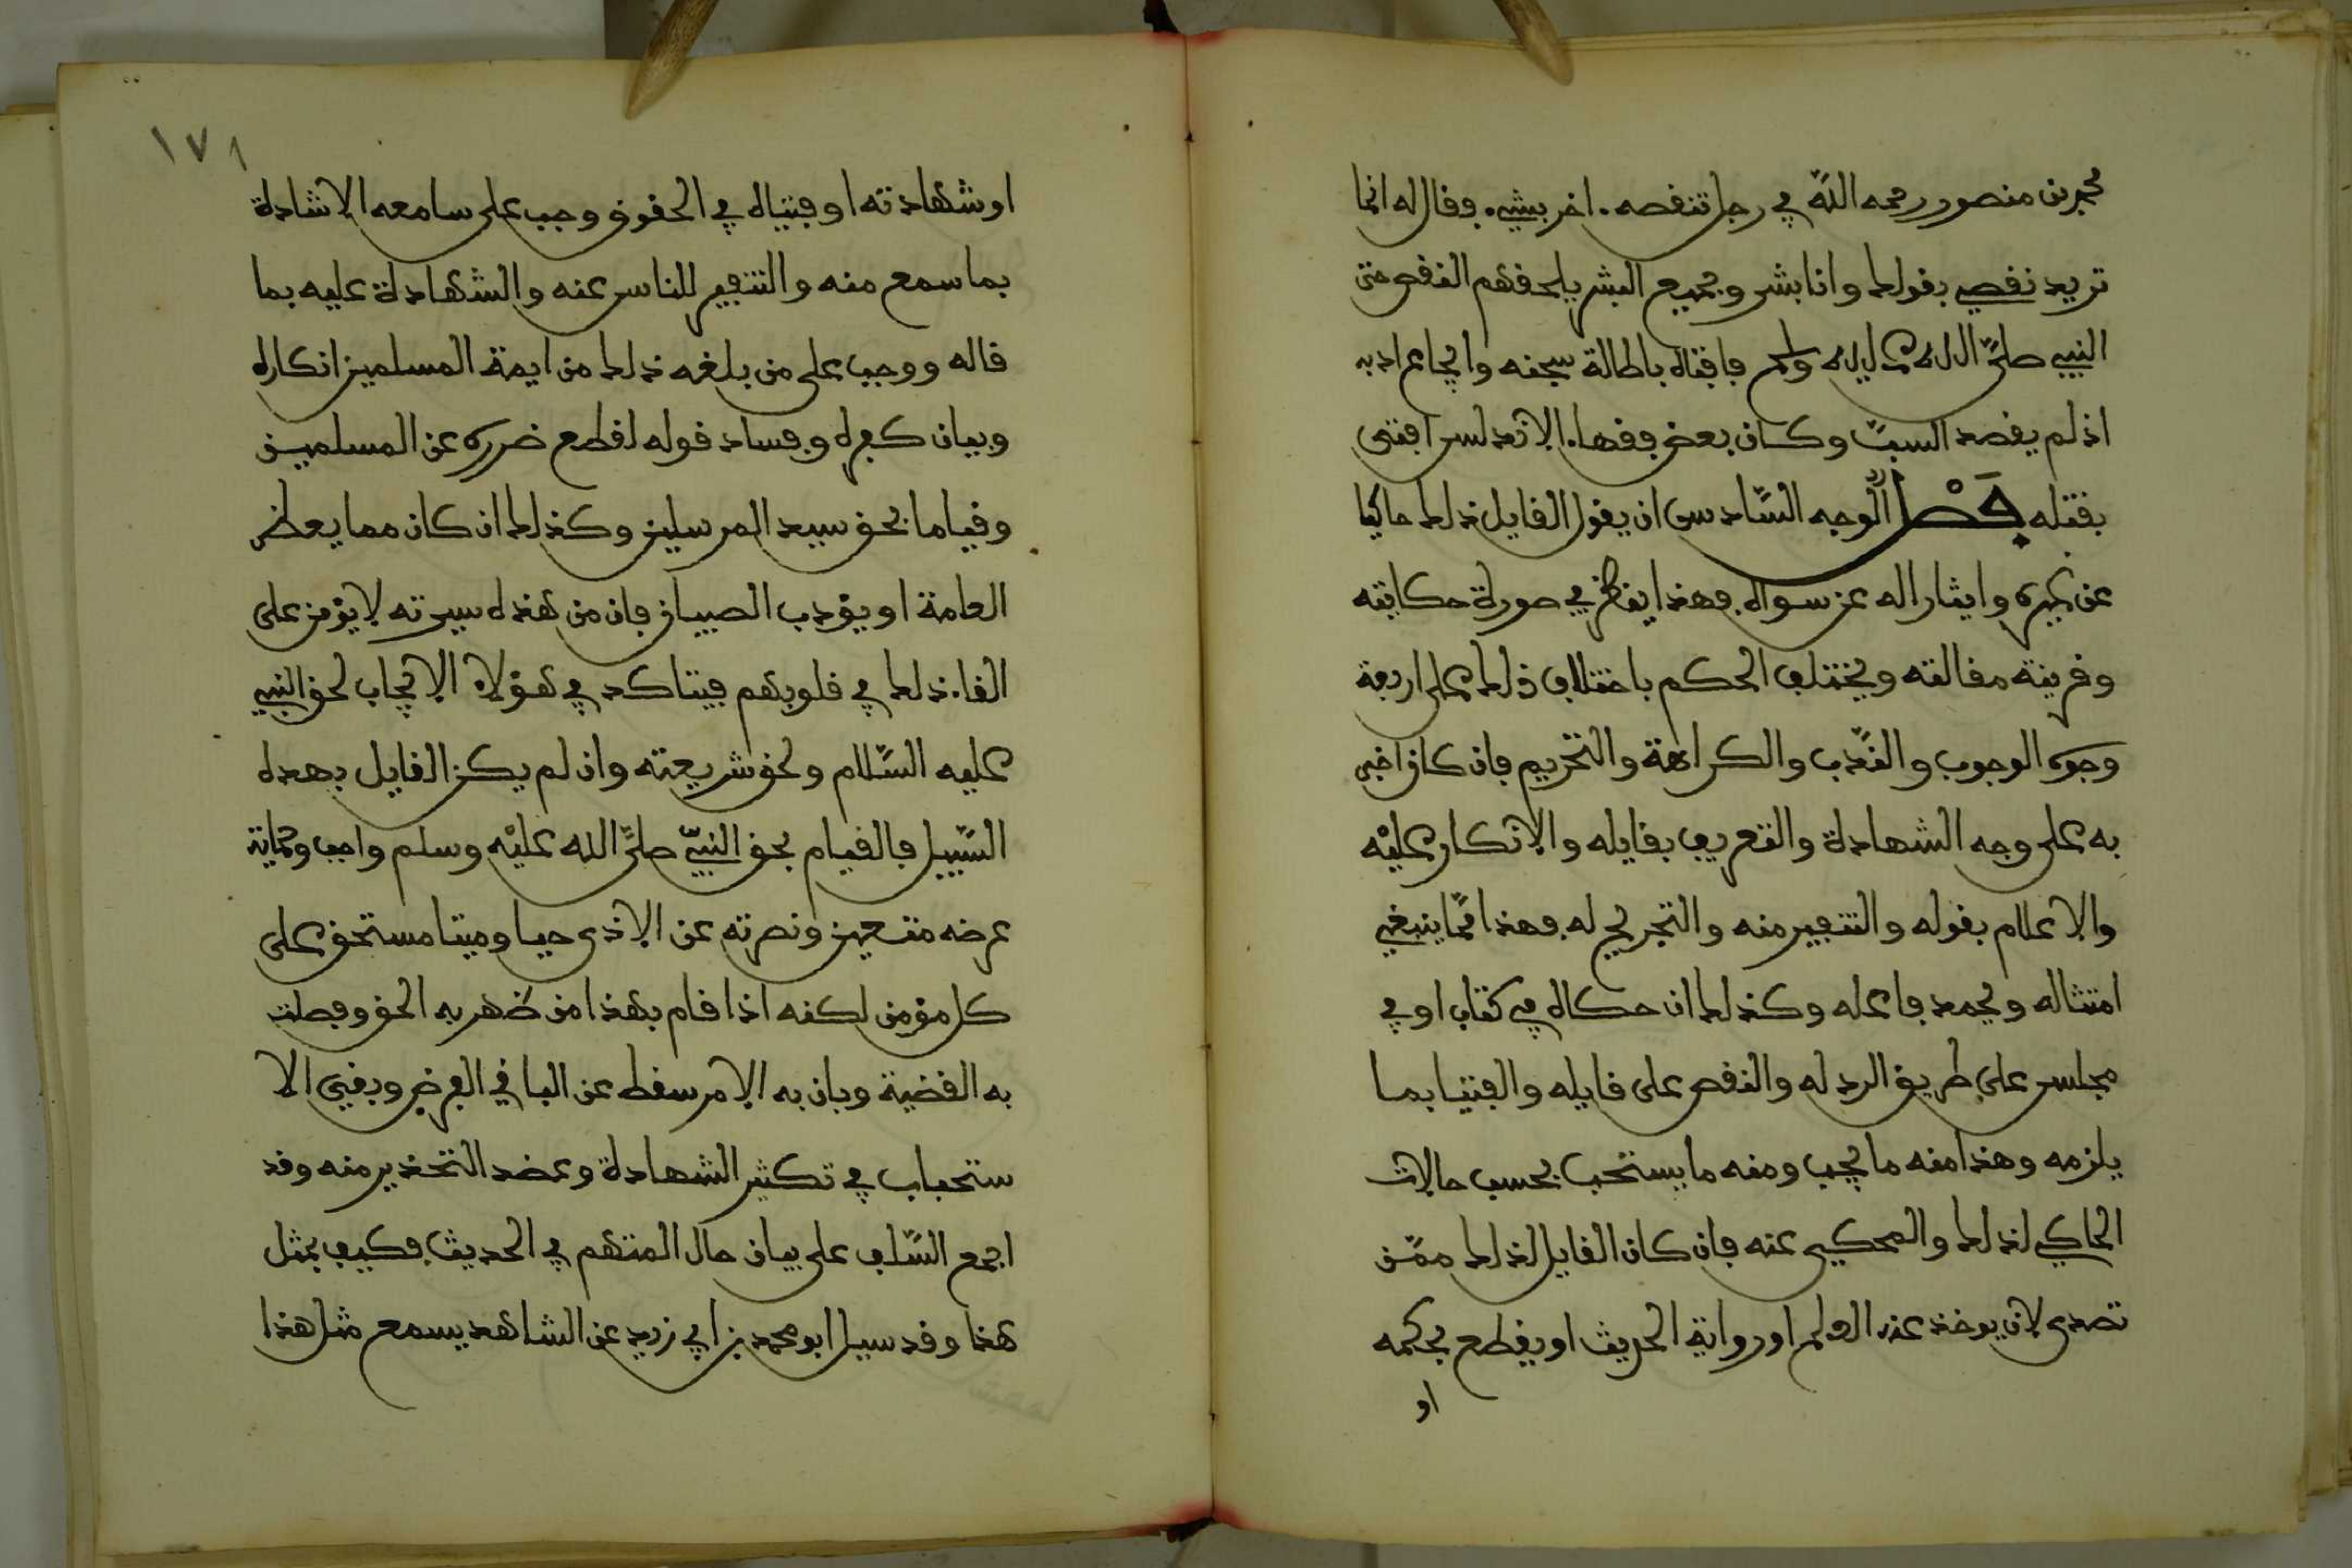 محمد بن منصور رحمه الله في رجل تنقصه . اخر بشي . فقال له انما
تريد نقصي بقولك وانا بشر وجميع البشر يلحقهم النقص حتى
النبي صلى الله عليه وسلم فافتاه باطالة سجنه وايجاع ادبه
اذ لم يقصد السب وكان بعض فقها . الاندلس افتى
بقتله فصل الوجه السادس ان يقول القايل ذلك حاكيا
عن غيره وايثارا له عن سواه فهذا ينظر في صورة حكايته
وقرينة مقالته ويختلف الحكم باختلاف ذلك على اربعة
وجوه الوجوب والندب والكراهة والتحريم فان كان اخبر
به على وجه الشهادة والتعريف بقايله والانكار عليه
والاعلام بقوله والتنفير منه والتجريح له فهذا مما ينبغي
امتثاله ويحمد فاعله وكذلك ان حكاه في كتاب او في
مجلس على طريق الرد له والنقص على قايله والفتيا بما
يلزمه وهذا منه ما يجب ومنه ما يستحب بحسب حالات
الحاكي لذلك والمحكي عنه فان كان القايل لذلك ممن
تصدى لان يوخذ عنه العلم او رواية الحديث او يقطع بحكمه
او
١٧١
او شهادته او فتياه في الحقوق وجب على سامعه الاشادة
بما سمع منه والتنفير للناس عنه والشهادة عليه بما
قاله ووجب على من بلغه ذلك من ايمة المسلمين انكاره
وبيان كفره وفساد قوله لقطع ضرره عن المسلمين
وقياما بحق سيد المرسلين وكذلك ان كان مما يعظ
العامة او يؤدب الصبيان فان من هذه سيرته لا يؤمن على
القا . ذلك في قلوبهم فيتاكد في هؤلاء الايجاب لحق النبي
عليه السلام ولحق شريعته وان لم يكن القايل بهذه
السبيل فالقيام بحق النبي صلى الله عليه وسلم واجب وحماية
عرضه متعين ونصرته عن الاذى حيا وميتا مستحق على
كل مؤمن لكنه اذا قام بهذا من ظهر به الحق وفصلت
به القضية وبان به الامر سقط عن الباقي الفرض وبقي الا
ستحباب في تكثير الشهادة وعضد التحذير منه وقد
اجمع السلف على بيان حال المتهم في الحديث فكيف بمثل
هذا وقد سيل ابو محمد بن ابي زيد عن الشاهد يسمع مثل هذا